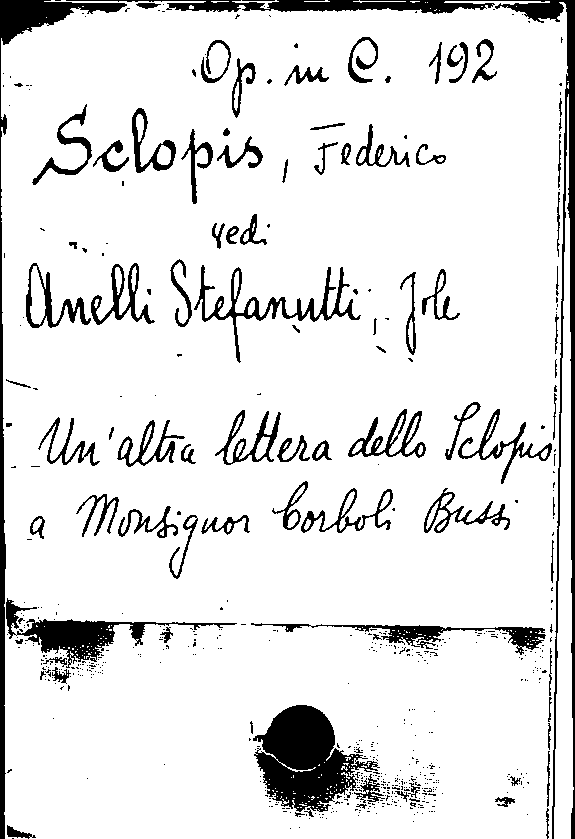 Op. in C. 192
Sclopis, Federico
vedi
Anelli Stefanutti, Jole
Un'altra lettera dello Sclopis
a Monsignor Corboli Bussi